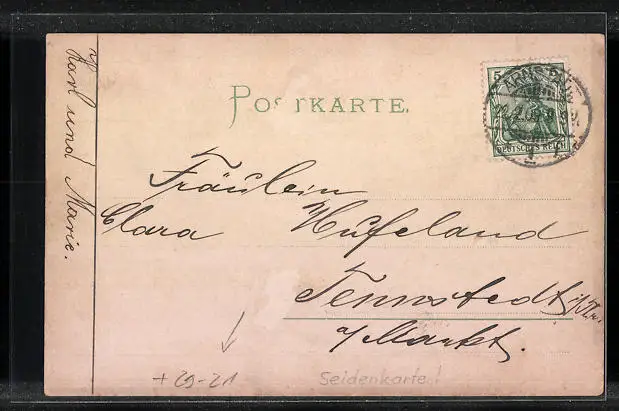 Karl und Marie.
POSTKARTE.
5
DEUTSCHES REICH
Fräulein
Clara Hufeland
Tennstedt i/Th.
a/Markt.
+ 29-21
Seidenkarte!